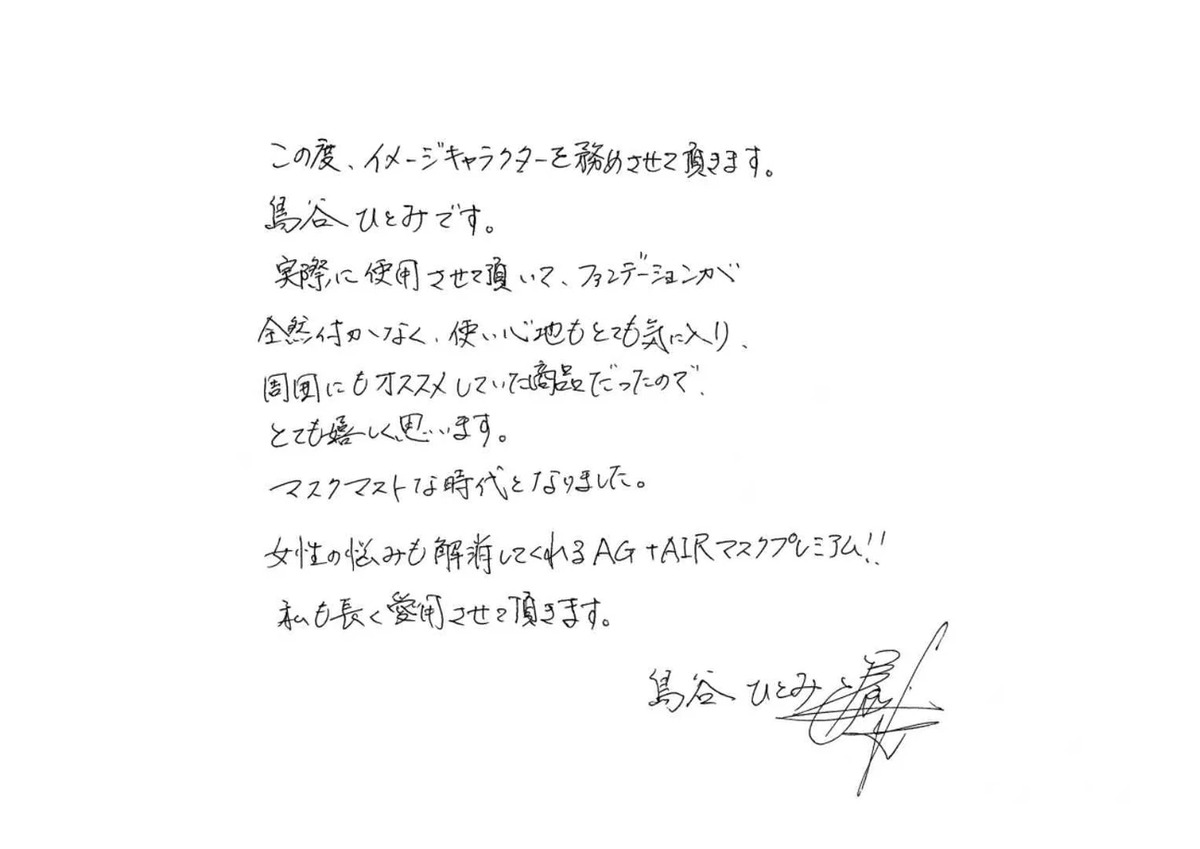 この度、イメージキャラクターを務めさせて頂きます。
島谷ひとみです。
実際に使用させて頂いて、ファンデーションが
全然付かなく、使い心地もとても気に入り、
周囲にもオススメしていた商品だったので、
とても嬉しく思います。
マスクマストな時代となりました。
女性の悩みも解消してくれるAG+AIRマスクプレミアム!!
私も長く愛用させて頂きます。
島谷ひとみ